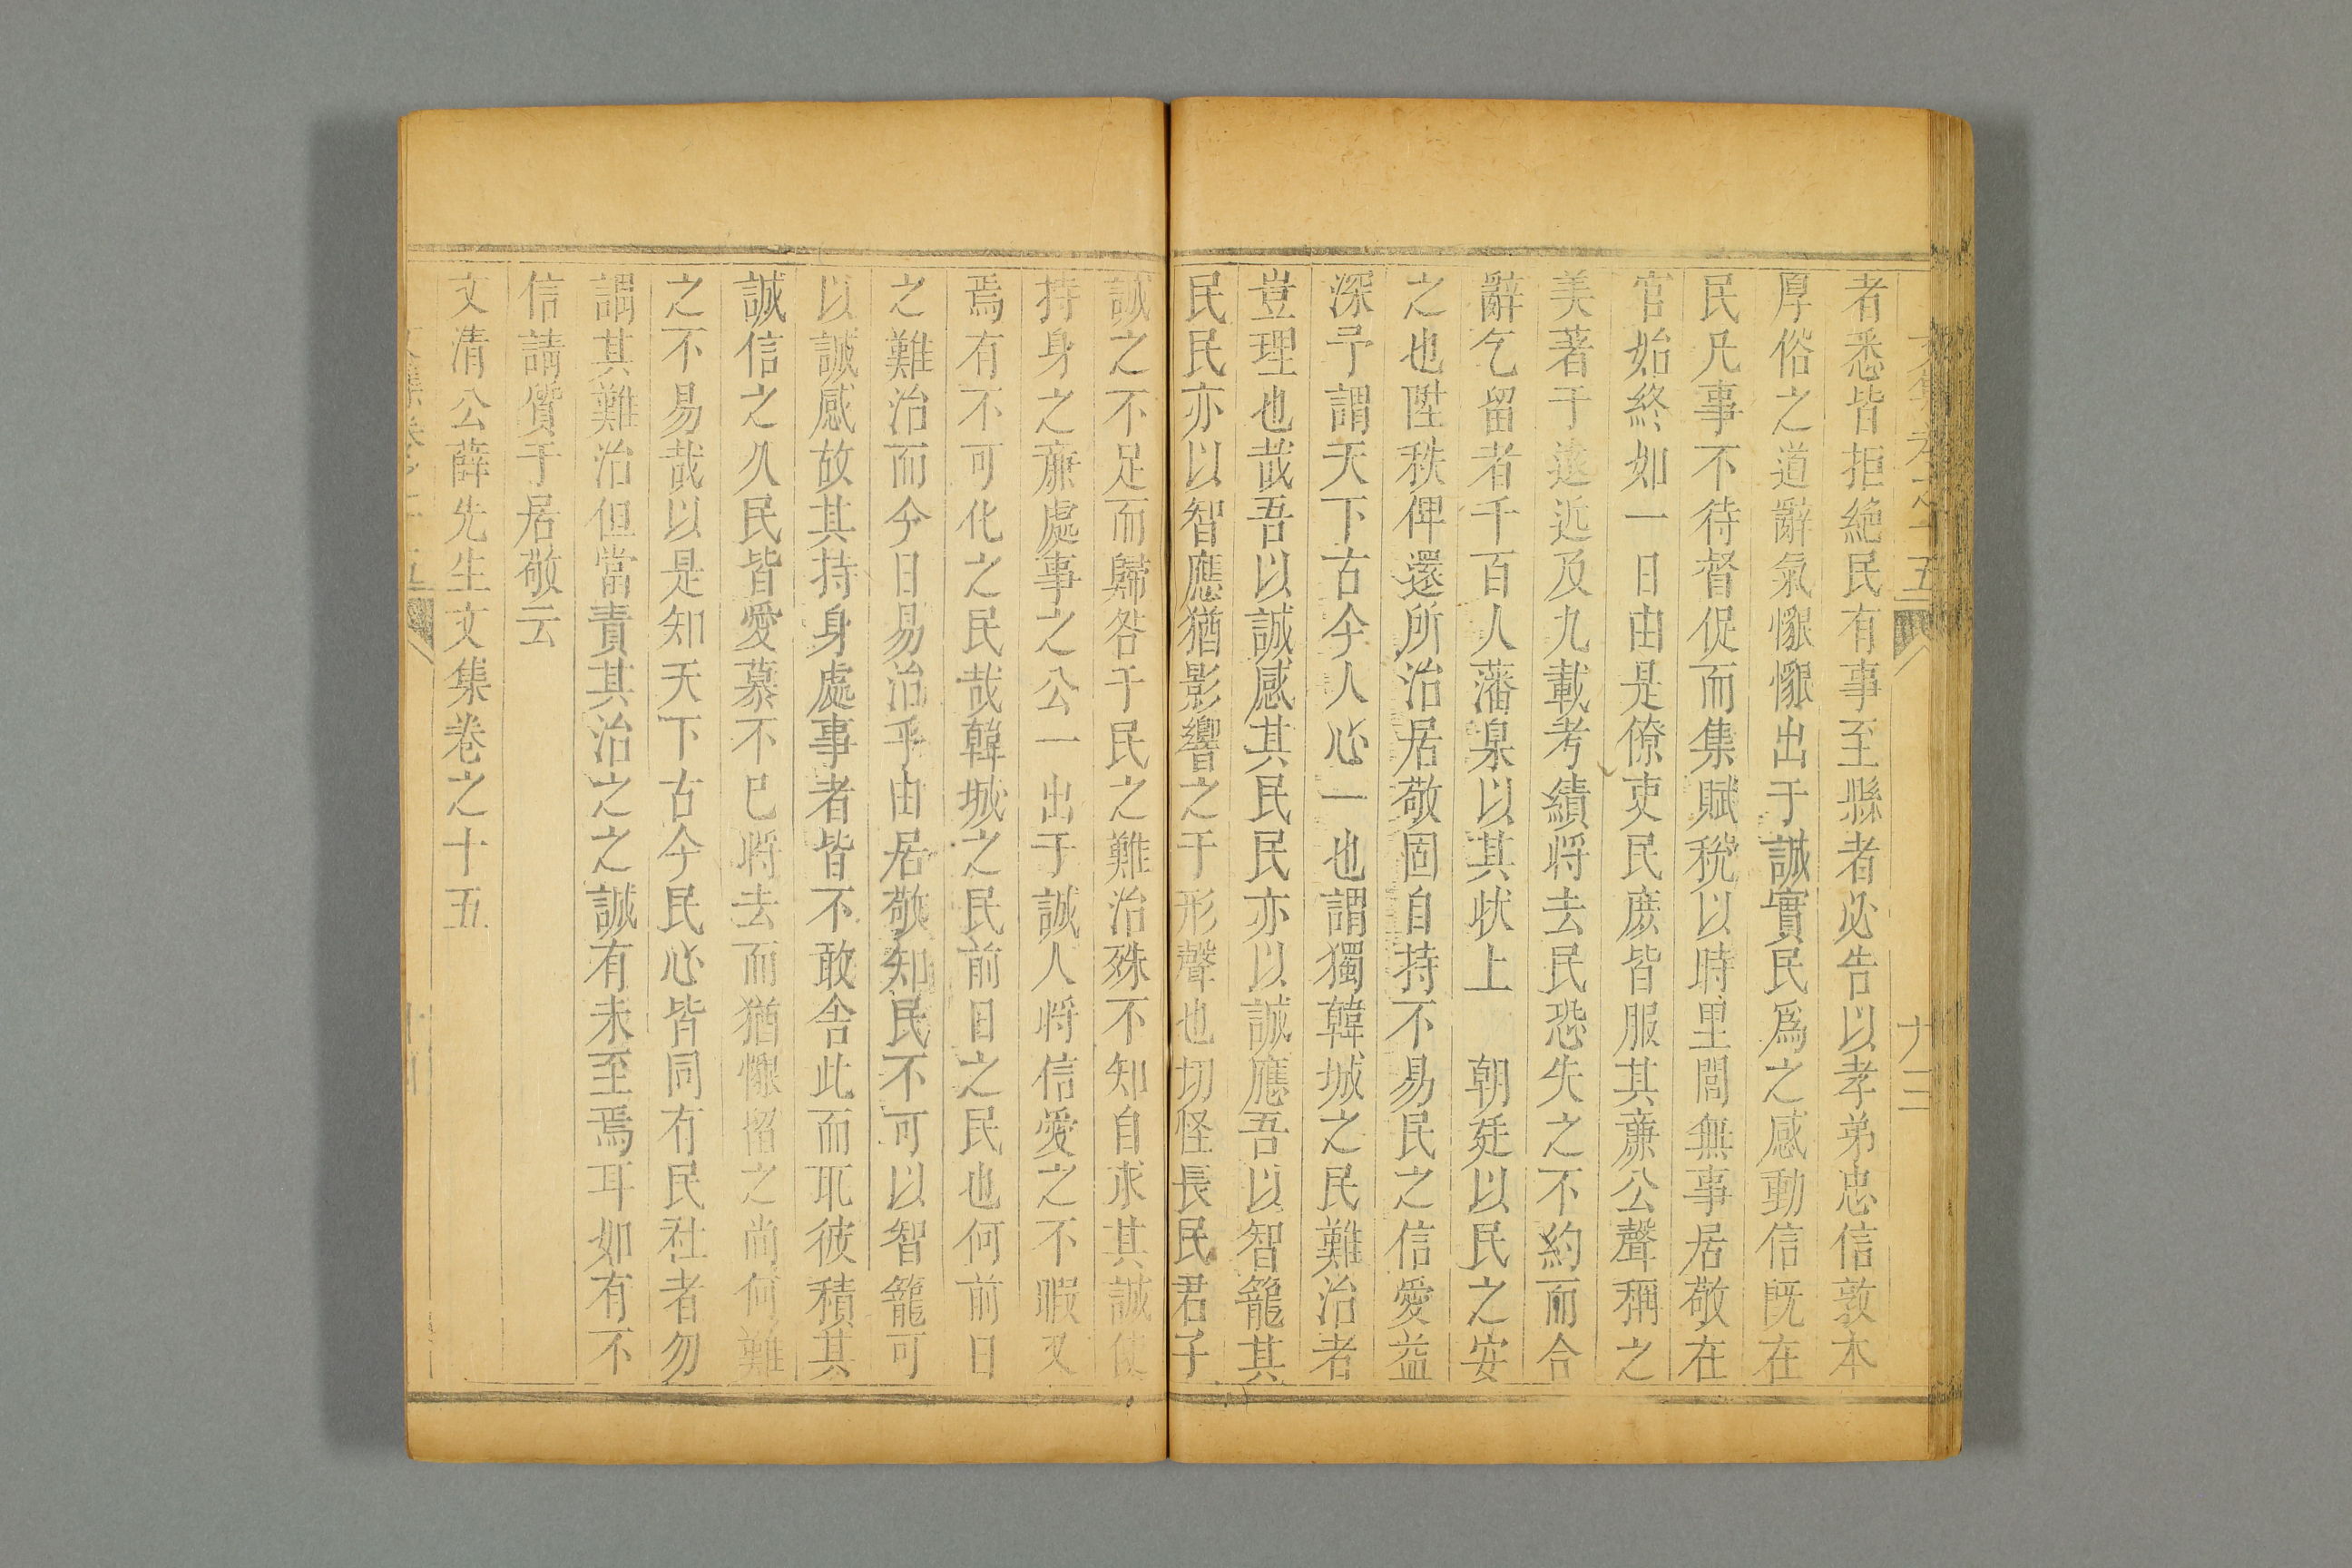 者悉皆拒絶民有事至縣者必告以孝弟忠信敦本
厚俗之道辭氣懇懇出于誠實民爲之感動信既在
民凡事不待督促而集賦稅以時里閭無事居敬在
官始終如一日由是僚吏民庶皆服其廉公聲稱之
美著于遠近及九載考績将去民恐失之不約而合
辭乞留者千百人藩臬以其状上 朝廷以民之安
之也陞秩俾還所治居敬固自持不易民之信愛益
深予謂天下古今人心一也謂獨韓城之民難治者
豈理也哉吾以誠感其民民亦以誠應吾以智籠其
民民亦以智應猶影響之于形聲也切怪長民君子
誠之不足而歸咎于民之難治殊不知自求其誠使
持身之廉處事之公一出于誠人将信愛之不暇又
焉有不可化之民哉韓城之民前日之民也何前日
之難治而今日易治乎由居敬知民不可以智籠可
以誠感故其持身處事者皆不敢舍此而取彼積其
誠信之久民皆愛慕不已将去而猶懇留之尚何難
之不易哉以是知天下古今民心皆同有民社者勿
謂其難治但當責其治之之誠有未至焉耳如有不
信請質于居敬云
文清公薛先生文集卷之十五